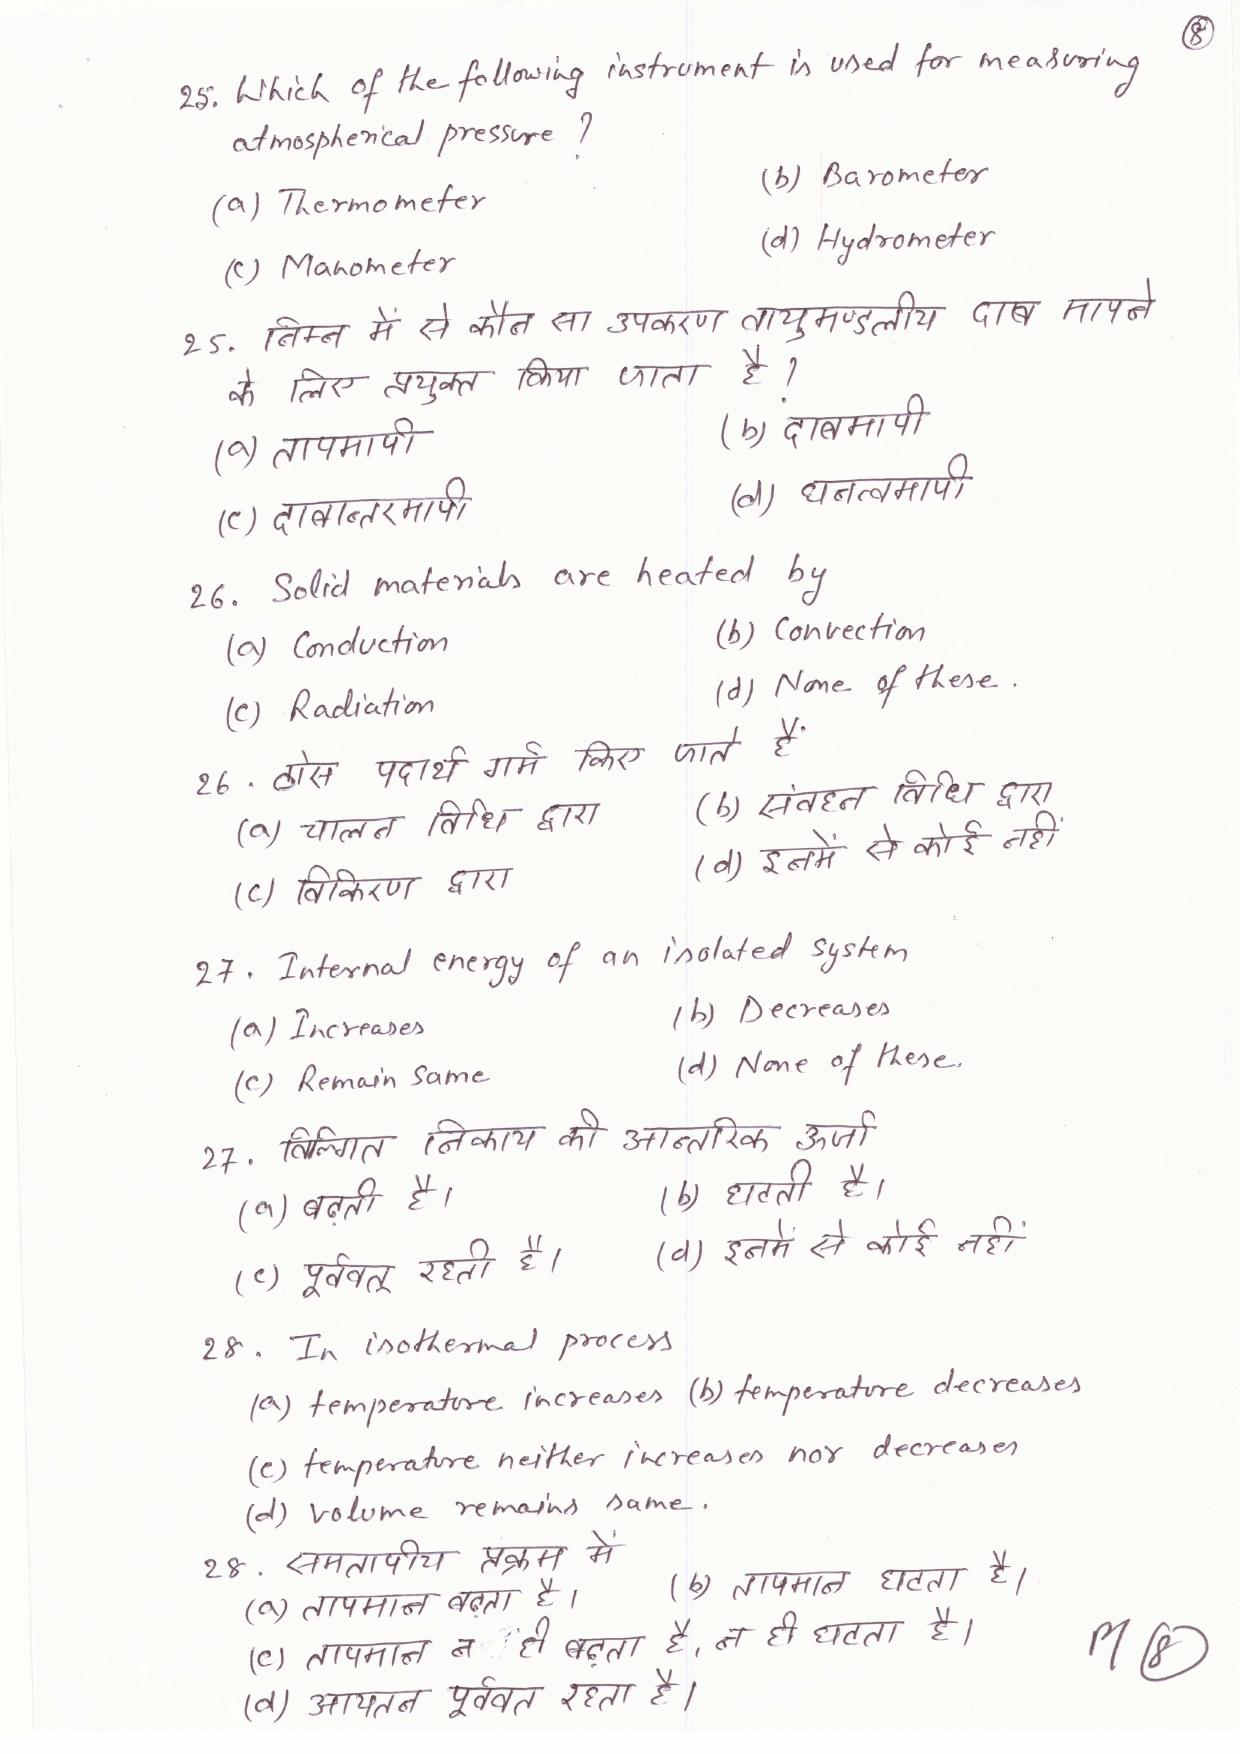 8
25. Which of the following instrument is used for measuring
atmospherical pressure ?
(a) Thermometer (b) Barometer
(c) Manometer (d) Hydrometer
25. निम्न में से कौन सा उपकरण वायुमण्डलीय दाब मापने
के लिए प्रयुक्त किया जाता है ?
(a) तापमापी (b) दाबमापी
(c) दाबान्तरमापी (d) घनत्वमापी
26. Solid materials are heated by
(a) Conduction (b) Convection
(c) Radiation (d) None of these.
26. ठोस पदार्थ गर्म किए जाते हैं
(a) चालन विधि द्वारा (b) संवहन विधि द्वारा
(c) विकिरण द्वारा (d) इनमें से कोई नहीं
27. Internal energy of an isolated system
(a) Increases (b) Decreases
(c) Remain same (d) None of these.
27. विलगित निकाय की आन्तरिक ऊर्जा
(a) बढ़ती है। (b) घटती है।
(c) पूर्ववत् रहती है। (d) इनमें से कोई नहीं
28. In isothermal process
(a) temperature increases (b) temperature decreases
(c) temperature neither increases nor decreases
(d) volume remains same.
28. समतापीय प्रक्रम में
(a) तापमान बढ़ता है। (b) तापमान घटता है।
(c) तापमान न ही बढ़ता है, न ही घटता है।
(d) आयतन पूर्ववत रहता है।
M 8